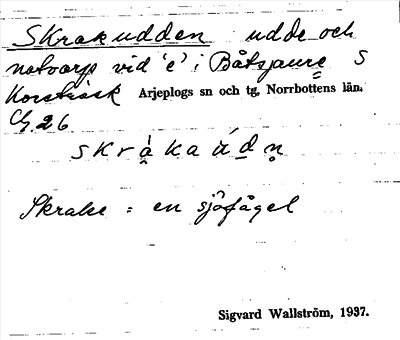 Skrakudden udde och
notvarp vid 'e' i Båtsjaure S
Korsträsk Arjeplogs sn och tg, Norrbottens län.
26
skràkaúdn
Skrake = en sjöfågel
Sigvard Wallström, 1937.